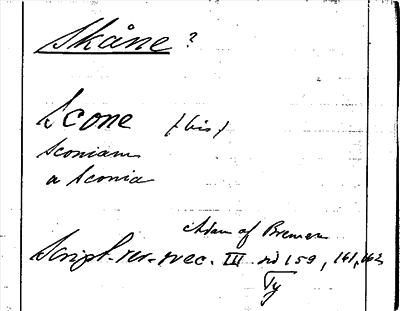 Skåne ?
Scone (bis)
Sconiam
a Sconia
Adam of Bremen
Script. rer. svec. III sid 159, 161, 163
Ty